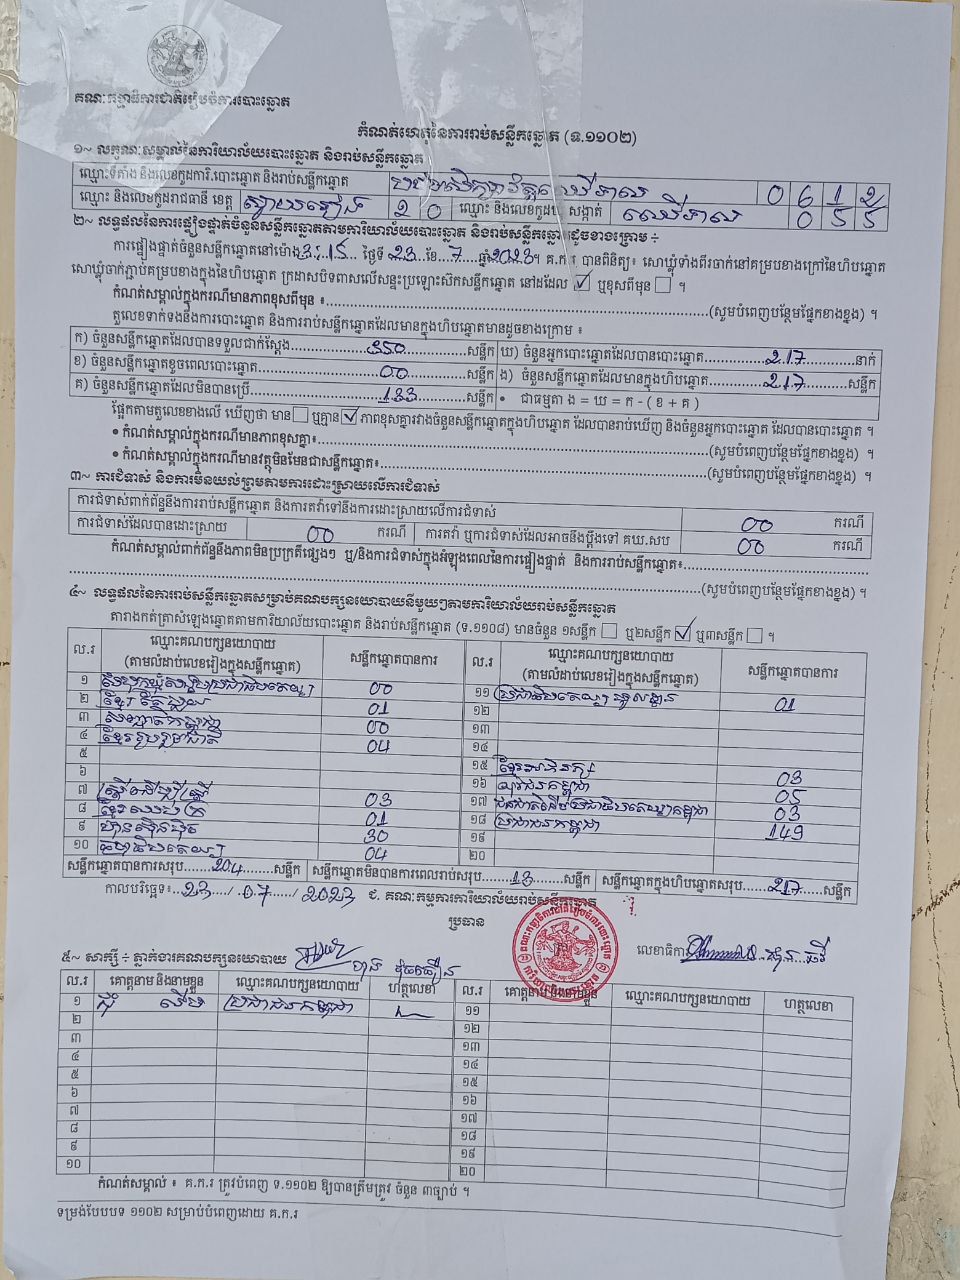 គណៈកម្មាធិការជាតិរៀបចំការបោះឆ្នោត
កំណត់ហេតុនៃការរាប់សន្លឹកឆ្នោត (ទ.១១០២)
១~ លក្ខណៈសម្គាល់នៃការិយាល័យបោះឆ្នោត និងរាប់សន្លឹកឆ្នោត
ឈ្មោះទីតាំង និងលេខកូដការិ.បោះឆ្នោត និងរាប់សន្លឹកឆ្នោត 0 6 1 2
ឈ្មោះ និងលេខកូដរាជធានី ខេត្ត ស្វាយរៀង 2 0 ឈ្មោះ និងលេខកូដឃុំ សង្កាត់ ឈើទាល 0 5 5
២~ លទ្ធផលនៃការផ្ទៀងផ្ទាត់ចំនួនសន្លឹកឆ្នោតតាមការិយាល័យបោះឆ្នោត និងរាប់សន្លឹកឆ្នោត ដូចខាងក្រោម ÷
ការផ្ទៀងផ្ទាត់ចំនួនសន្លឹកឆ្នោតនៅម៉ោង 3:15 ថ្ងៃទី 23 ខែ 7 ឆ្នាំ 2023 ។ គ.ក.រ បានពិនិត្យ៖ សោឃ្លុំទាំងពីរចាក់នៅគម្របខាងក្រៅនៃហិបឆ្នោត
សោឃ្លុំចាក់ភ្ជាប់គម្របខាងក្នុងនៃហិបឆ្នោត ក្រដាសបិទពាសលើសន្ទះប្រឡោះស៊កសន្លឹកឆ្នោត នៅដដែល ☑ ឬខុសពីមុន ☐ ។
កំណត់សម្គាល់ក្នុងករណីមានភាពខុសពីមុន ៖ (សូមបំពេញបន្ថែមផ្នែកខាងខ្នង) ។
តួលេខទាក់ទងនឹងការបោះឆ្នោត និងការរាប់សន្លឹកឆ្នោតដែលមានក្នុងហិបឆ្នោតមានដូចខាងក្រោម ៖
ក) ចំនួនសន្លឹកឆ្នោតដែលបានទទួលជាក់ស្តែង 350 សន្លឹក ឃ) ចំនួនអ្នកបោះឆ្នោតដែលបានបោះឆ្នោត 217 នាក់
ខ) ចំនួនសន្លឹកឆ្នោតខូចពេលបោះឆ្នោត 00 សន្លឹក ង) ចំនួនសន្លឹកឆ្នោតដែលមានក្នុងហិបឆ្នោត 217 សន្លឹក
គ) ចំនួនសន្លឹកឆ្នោតដែលមិនបានប្រើ 133 សន្លឹក • ជាធម្មតា ង = ឃ = ក - ( ខ + គ )
ផ្អែកតាមតួលេខខាងលើ ឃើញថា មាន ☐ ឬគ្មាន ☑ ភាពខុសគ្នារវាងចំនួនសន្លឹកឆ្នោតក្នុងហិបឆ្នោត ដែលបានរាប់ឃើញ និងចំនួនអ្នកបោះឆ្នោត ដែលបានបោះឆ្នោត ។
• កំណត់សម្គាល់ក្នុងករណីមានភាពខុសគ្នា៖ (សូមបំពេញបន្ថែមផ្នែកខាងខ្នង) ។
• កំណត់សម្គាល់ក្នុងករណីមានវត្ថុមិនមែនជាសន្លឹកឆ្នោត៖ (សូមបំពេញបន្ថែមផ្នែកខាងខ្នង) ។
៣~ ការជំទាស់ និងការមិនយល់ព្រមតាមការដោះស្រាយលើការជំទាស់
ការជំទាស់ពាក់ព័ន្ធនឹងការរាប់សន្លឹកឆ្នោត និងការតវ៉ាទៅនឹងការដោះស្រាយលើការជំទាស់ 00 ករណី
ការជំទាស់ដែលបានដោះស្រាយ 00 ករណី ការតវ៉ា ឬការជំទាស់ដែលអាចនឹងប្តឹងទៅ គឃ.សប 00 ករណី
កំណត់សម្គាល់ពាក់ព័ន្ធនឹងភាពមិនប្រក្រតីផ្សេងៗ ឬ/និងការជំទាស់ក្នុងអំឡុងពេលនៃការផ្ទៀងផ្ទាត់ និងការរាប់សន្លឹកឆ្នោត៖
(សូមបំពេញបន្ថែមផ្នែកខាងខ្នង) ។
៤~ លទ្ធផលនៃការរាប់សន្លឹកឆ្នោតសម្រាប់គណបក្សនយោបាយនីមួយៗតាមការិយាល័យរាប់សន្លឹកឆ្នោត
តារាងកត់ត្រាសំឡេងឆ្នោតតាមការិយាល័យបោះឆ្នោត និងរាប់សន្លឹកឆ្នោត (ទ.១១០៨) មានចំនួន ១សន្លឹក ☐ ឬ២សន្លឹក ☑ ឬ៣សន្លឹក ☐ ។
ល.រ ឈ្មោះគណបក្សនយោបាយ (តាមលំដាប់លេខរៀងក្នុងសន្លឹកឆ្នោត) សន្លឹកឆ្នោតបានការ ល.រ ឈ្មោះគណបក្សនយោបាយ (តាមលំដាប់លេខរៀងក្នុងសន្លឹកឆ្នោត) សន្លឹកឆ្នោតបានការ
១ 00 ១១ 01
២ 01 ១២
៣ 00 ១៣
៤ ខ្មែររួបរួមជាតិ 04 ១៤
៥ ១៥ 03
៦ ១៦ 05
៧ ស្ត្រីដើម្បីស្ត្រី 03 ១៧ 03
៨ 01 ១៨ ប្រជាជនកម្ពុជា 149
៩ ហ៊្វុនស៊ិនប៉ិច 30 ១៩
១០ ធម្មាធិបតេយ្យ 04 ២០
សន្លឹកឆ្នោតបានការសរុប 204 សន្លឹក សន្លឹកឆ្នោតមិនបានការពេលរាប់សរុប 13 សន្លឹក សន្លឹកឆ្នោតក្នុងហិបឆ្នោតសរុប 217 សន្លឹក
កាលបរិច្ឆេទ៖ 23 / 07 / 2023 ជ. គណៈកម្មការការិយាល័យរាប់សន្លឹកឆ្នោត
ប្រធាន
លេខាធិការ
៥~ សាក្សី ÷ ភ្នាក់ងារគណបក្សនយោបាយ
ល.រ គោត្តនាម និងនាមខ្លួន ឈ្មោះគណបក្សនយោបាយ ហត្ថលេខា ល.រ គោត្តនាម និងនាមខ្លួន ឈ្មោះគណបក្សនយោបាយ ហត្ថលេខា
១ ប្រជាជនកម្ពុជា ១១
២ ១២
៣ ១៣
៤ ១៤
៥ ១៥
៦ ១៦
៧ ១៧
៨ ១៨
៩ ១៩
១០ ២០
កំណត់សម្គាល់ ៖ គ.ក.រ ត្រូវបំពេញ ទ.១១០២ ឱ្យបានត្រឹមត្រូវ ចំនួន ៣ច្បាប់ ។
ទម្រង់បែបបទ ១១០២ សម្រាប់បំពេញដោយ គ.ក.រ